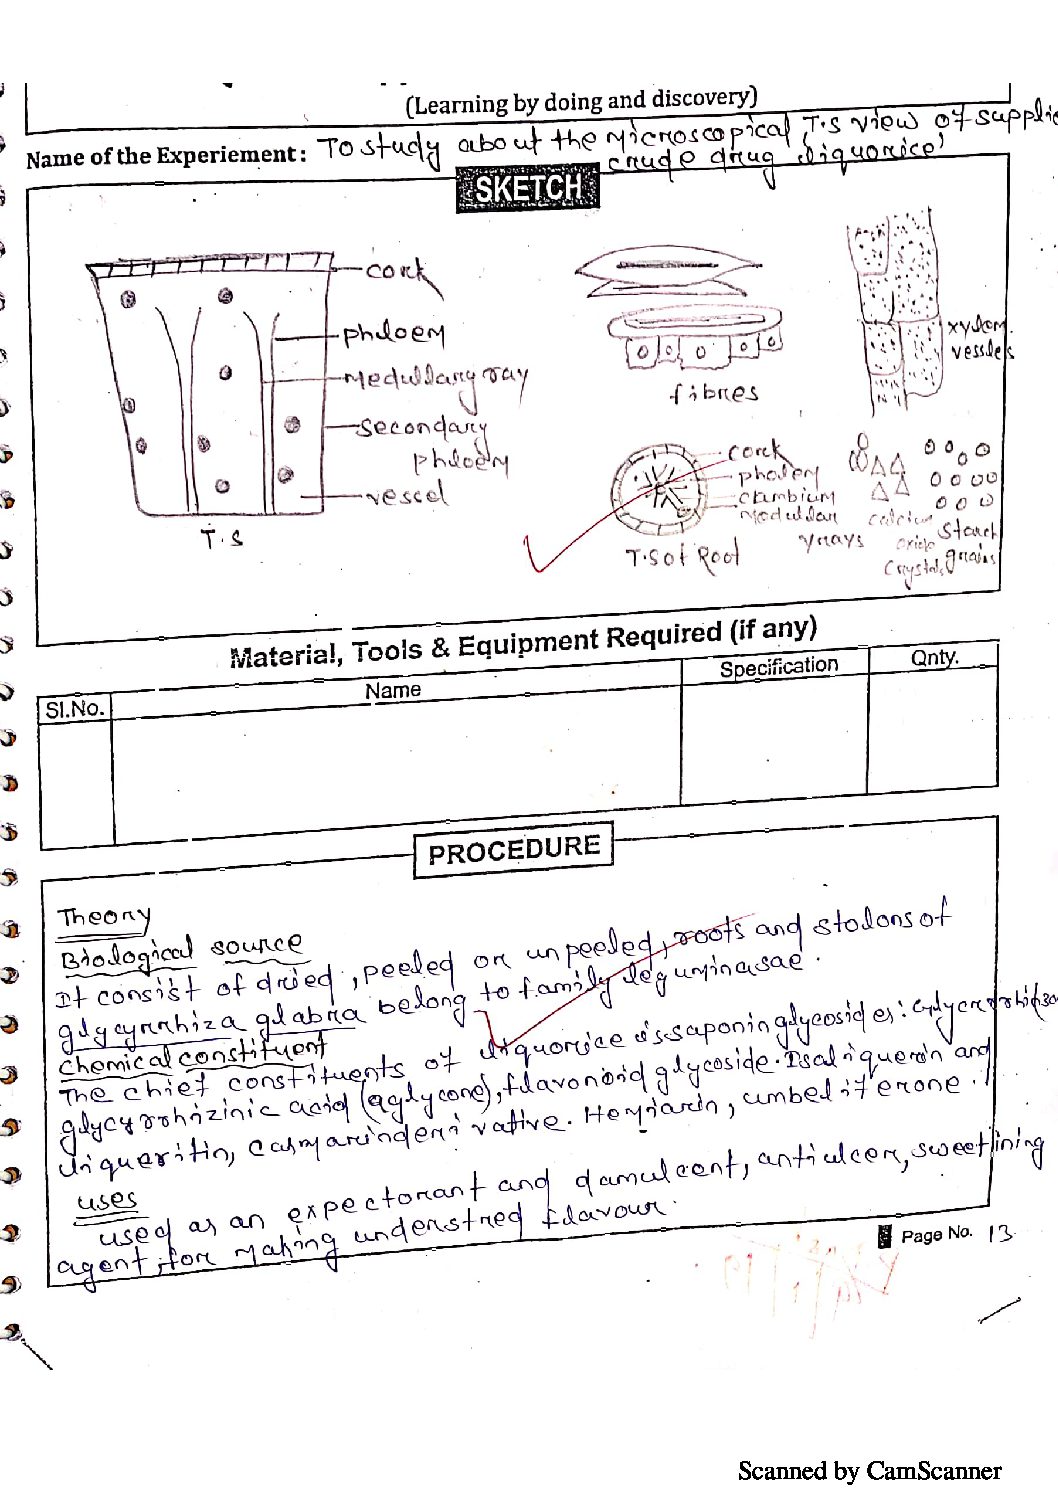 (Learning by doing and discovery)
Name of the Experiement: To study about the Microscopical, T.S view of supplie
crude drug 'liquorice'
SKETCH
cork
phloem
Medullary ray
secondary
phloem
vessel
T.S
fibres
xylem
vessles
cork
phloem
cambium
Medullar
yrays
T.S of Root
calcium
crystals
Starch
grains
Material, Tools & Equipment Required (if any)
Sl.No. Name Specification Qnty.
PROCEDURE
Theory
Biological source
It consist of dried, peeled or unpeeled, roots and stolons of
glycyrrhiza glabra belong to family leguminasae.
chemical constituent
The chief constituents of liquorice is saponin glycosides: Glycyrrhiza
glycyrrhizinic acid (aglycone), flavonoid glycoside. Isoliquerin and
liqueritin, derivative. Herniarin, umbeliferone.
uses
used as an expectorant and damulcent, antiulcer, sweetlining
agent, for making understred flavour.
Page No. 13
Scanned by CamScanner